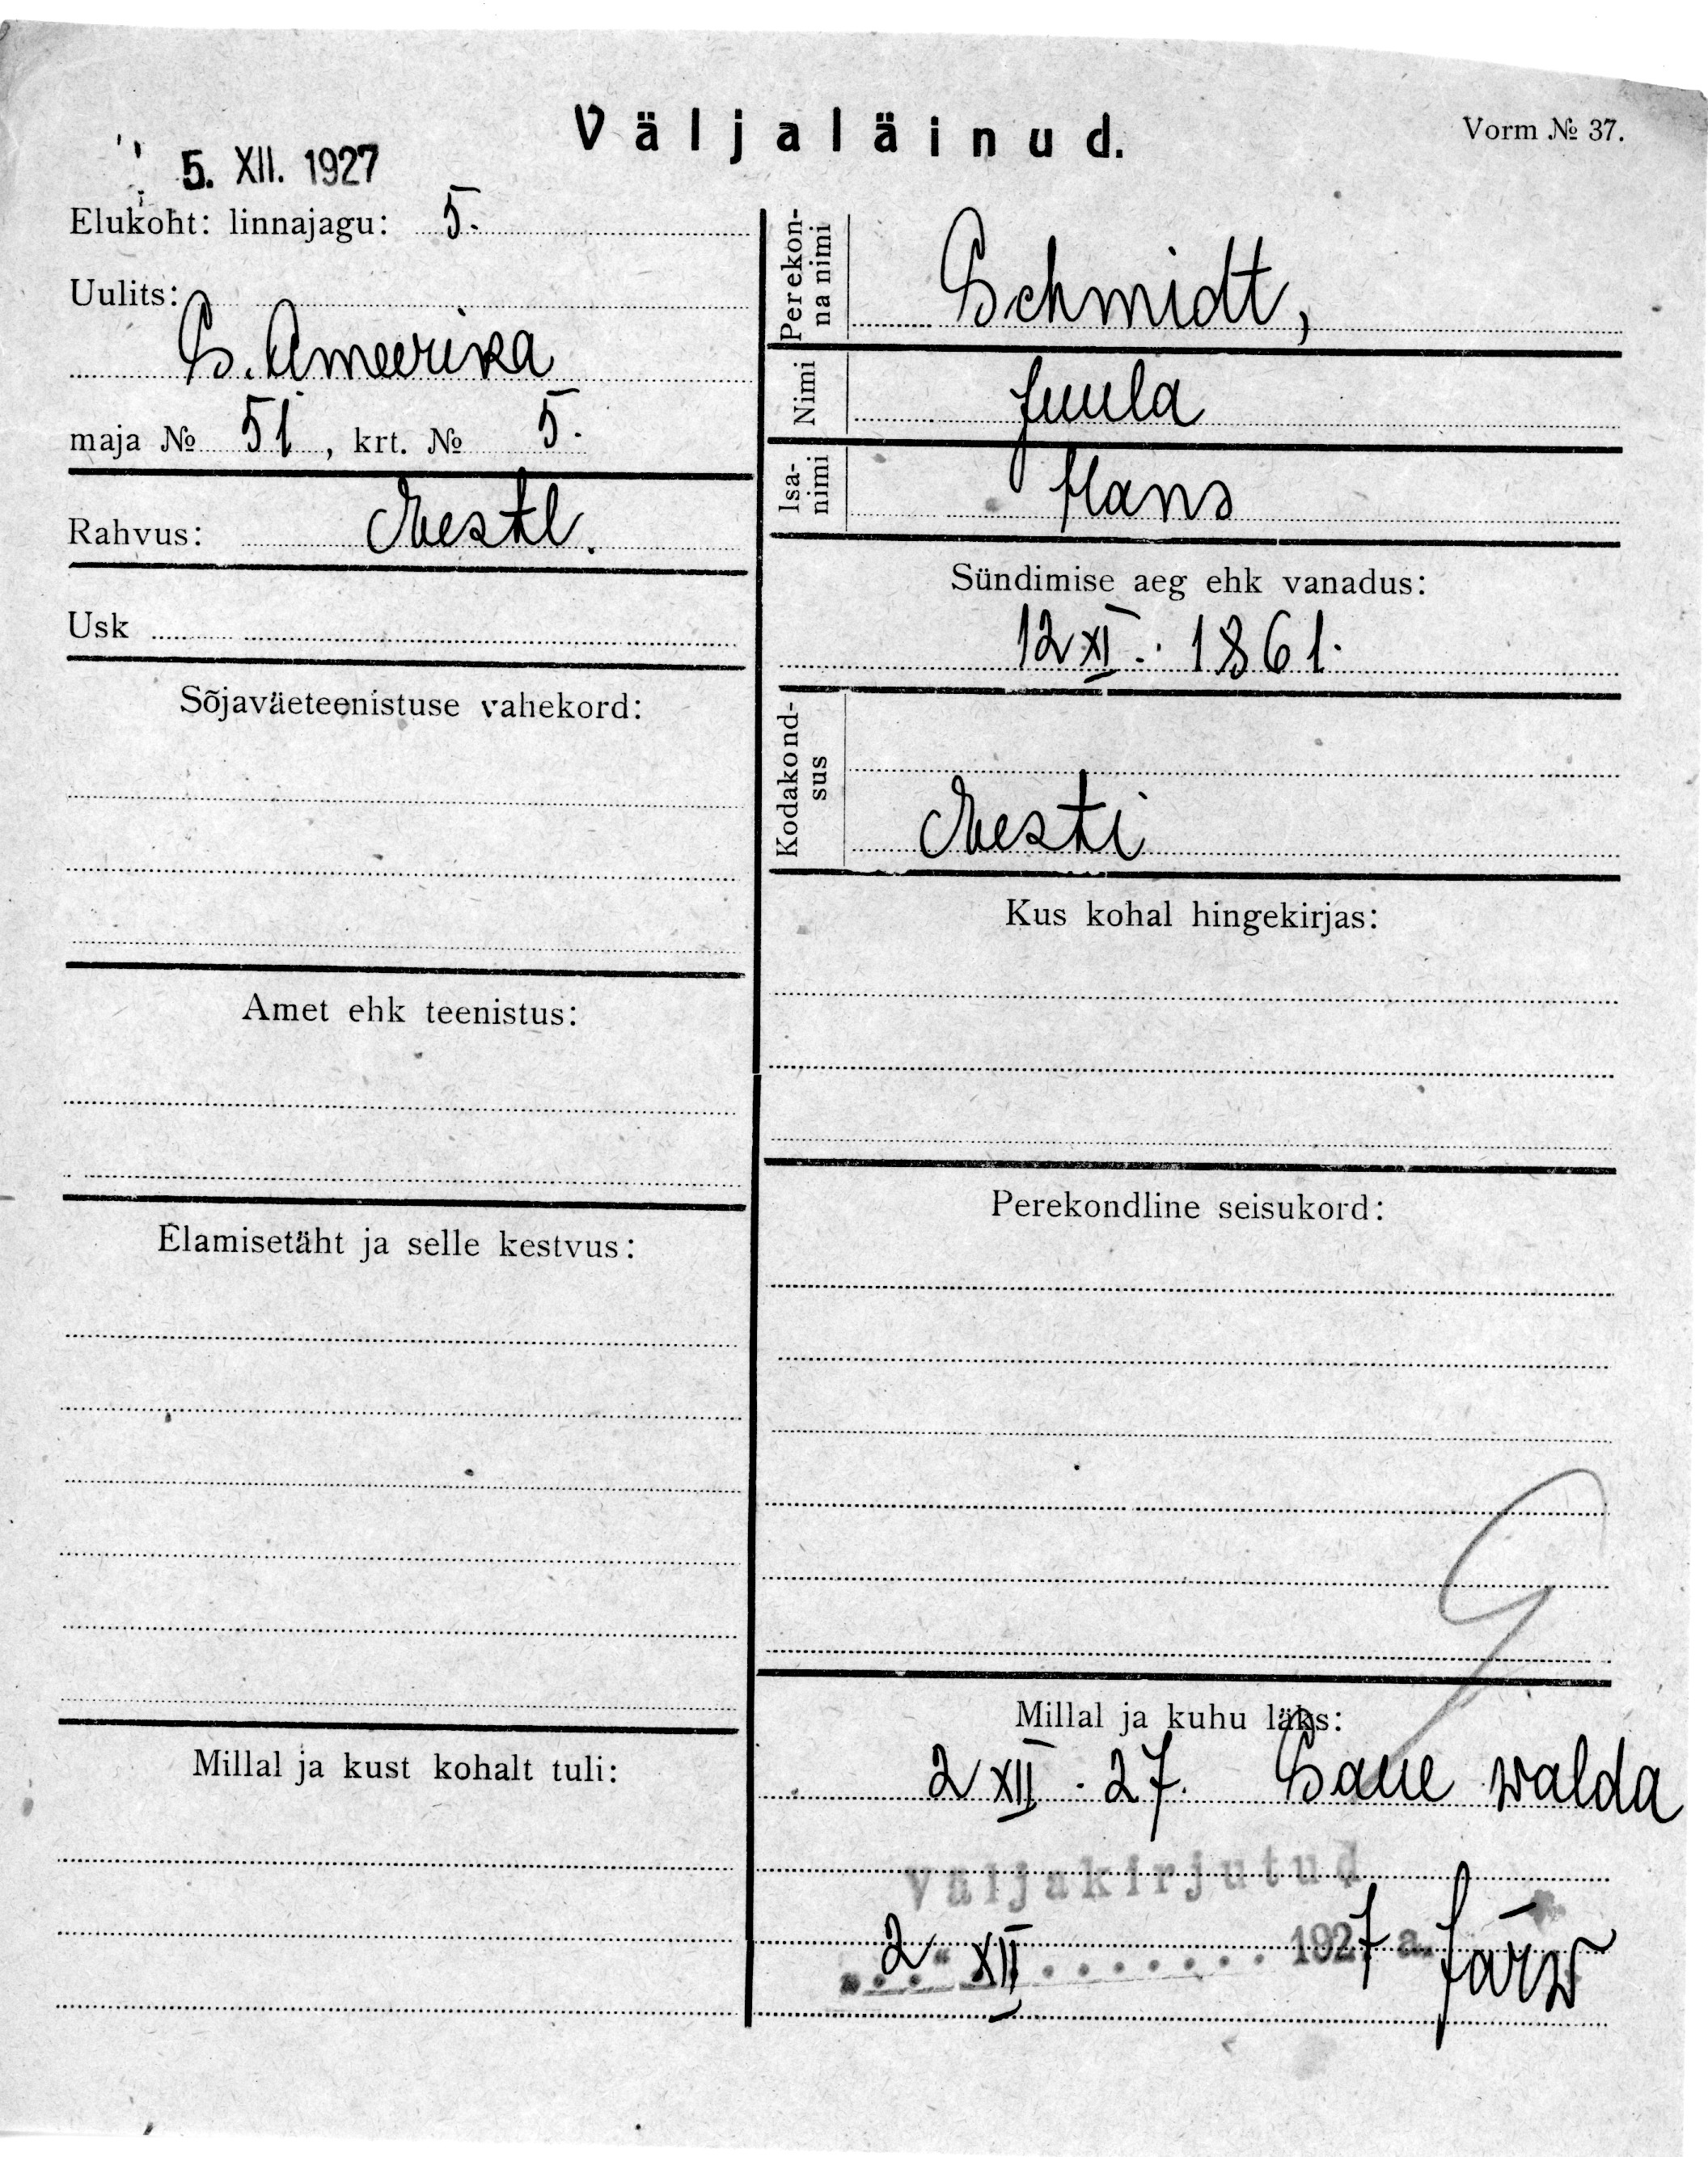 Väljaläinud.
Vorm № 37.
5. XII. 1927
Elukoht: linnajagu: 5.
Uulits:
S. Ameerika
maja № 51, krt. № 5.
Rahvus: Eestl.
Usk
Sõjaväeteenistuse vahekord:
Amet ehk teenistus:
Elamisetäht ja selle kestvus:
Millal ja kust kohalt tuli:
Perekon-
na nimi
Schmidt,
Nimi Juula
Isa-
nimi
Hans
Sündimise aeg ehk vanadus:
12 XI. 1861.
Kodakond-
sus
Eesti
Kus kohal hingekirjas:
Perekondline seisukord:
Millal ja kuhu läks:
2 XII. 27. Saue walda
Väljakirjutud
„2“ XII 1927 a. Järw